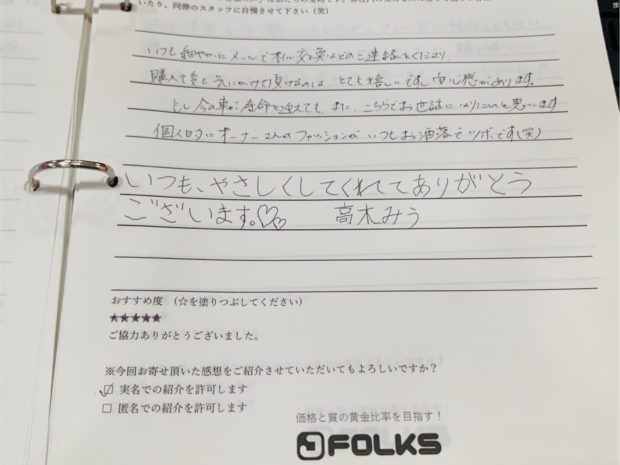 いたり、同僚のスタッフに自慢させて下さい（笑）
いつも細やかにメールでオイル交換などのご連絡をくださり
購入後も気にかけて頂けるのは とても嬉しいです。安心感があります。
もし今の車が寿命を迎えても、また、こちらでお世話になりたいと思います
個人的にオーナーさんのファッションがいつもお洒落でツボです(笑)
いつも、やさしくしてくれてありがとう
ございます。♡♡ 高木みう
おすすめ度 （☆を塗りつぶしてください）
★★★★★
ご協力ありがとうございました。
※今回お寄せ頂いた感想をご紹介させていただいてもよろしいですか？
☑ 実名での紹介を許可します
□ 匿名での紹介を許可します
価格と質の黄金比率を目指す！
FOLKS